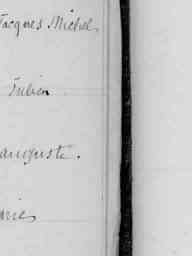 Jacques Michel.
Julien
auguste.